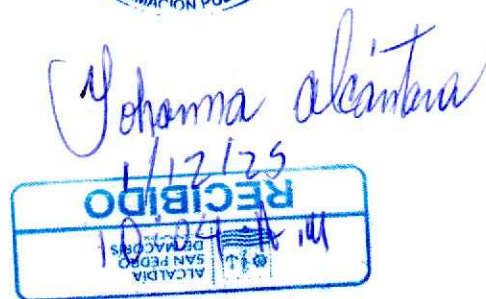 MACIÓN PÚ
Yohanna alcántara
1/12/25
RECIBIDO
10:04 A.M
ALCALDÍA
SAN PEDRO
DE MACORÍS